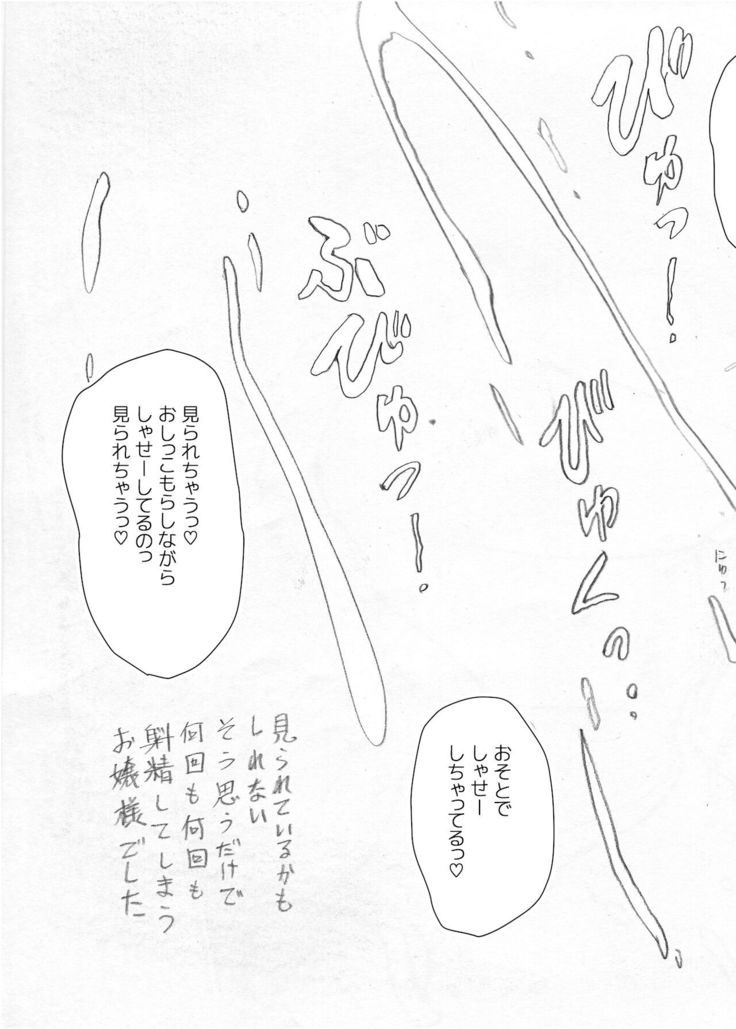 びゅっー！
ぶびゅっー！
びゅくっ
にゅっ
おそとで
しゃせー
しちゃってるっ♡
見られちゃうっ♡
おしっこもらしながら
しゃせーしてるのっ
見られちゃうっ♡
見られているかも
しれない
そう思うだけで
何回も何回も
射精してしまう
お嬢様でした